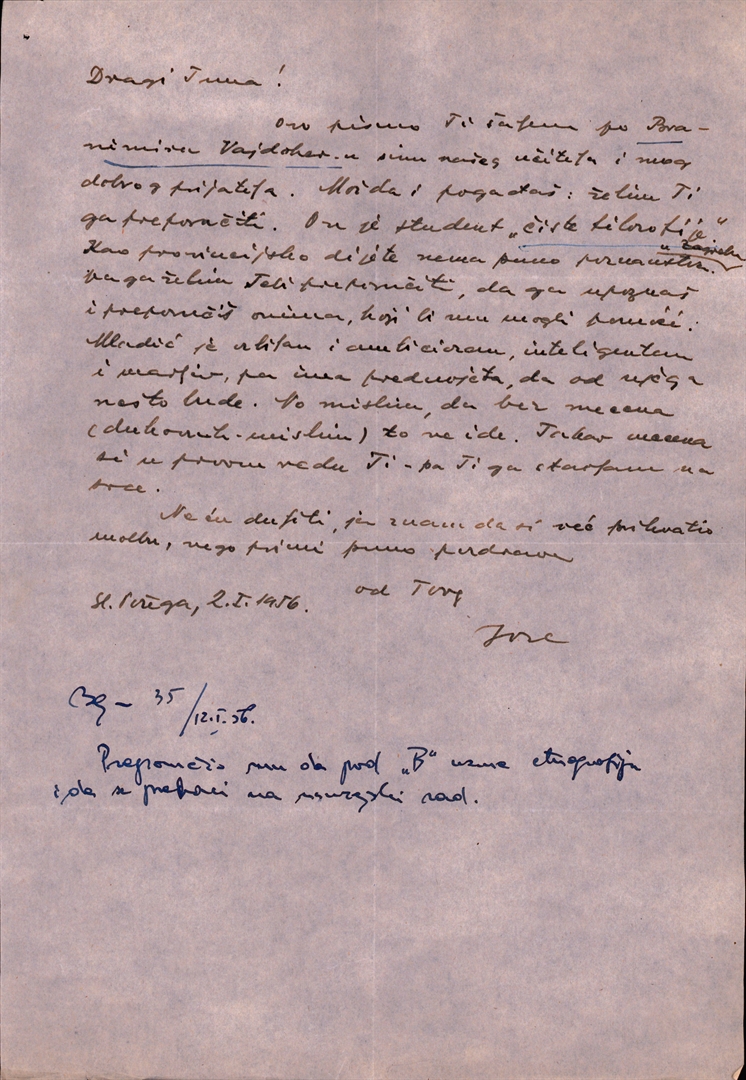 Dragi Tuna!
Ovo pismo Ti šaljem po Bra-
nimiru Vajdoher-u sinu našeg učitelja i mog
dobrog prijatelja. Možda i pogađaš: želim Ti
ga preporučiti. On je student „čiste filozofije"
u Zagrebu
Kao provincijsko dijete nema puno poznanstva.
pa ga želim Tebi preporučiti, da ga upoznaš
i preporučiš onima, koji bi mu mogli pomoći.
Mladić je ozbiljan i ambiciozan, inteligentan
i marljiv, pa ima preduvjeta, da od njega
nešto bude. No mislim, da bez mecena
(duhovnih-mislim) to ne ide. Takav mecena
si u prvom redu Ti - pa Ti ga stavljam na
srce.
Ne ću duljiti, jer znam da si već prihvatio
molbu, nego primi puno pozdrava
od Tvog
Sl. Požega, 2.I.1956.
Joze
35/12.I.56.
Preporučio mu da pod „B" uzme etnografiju
i da se na muzejski rad.